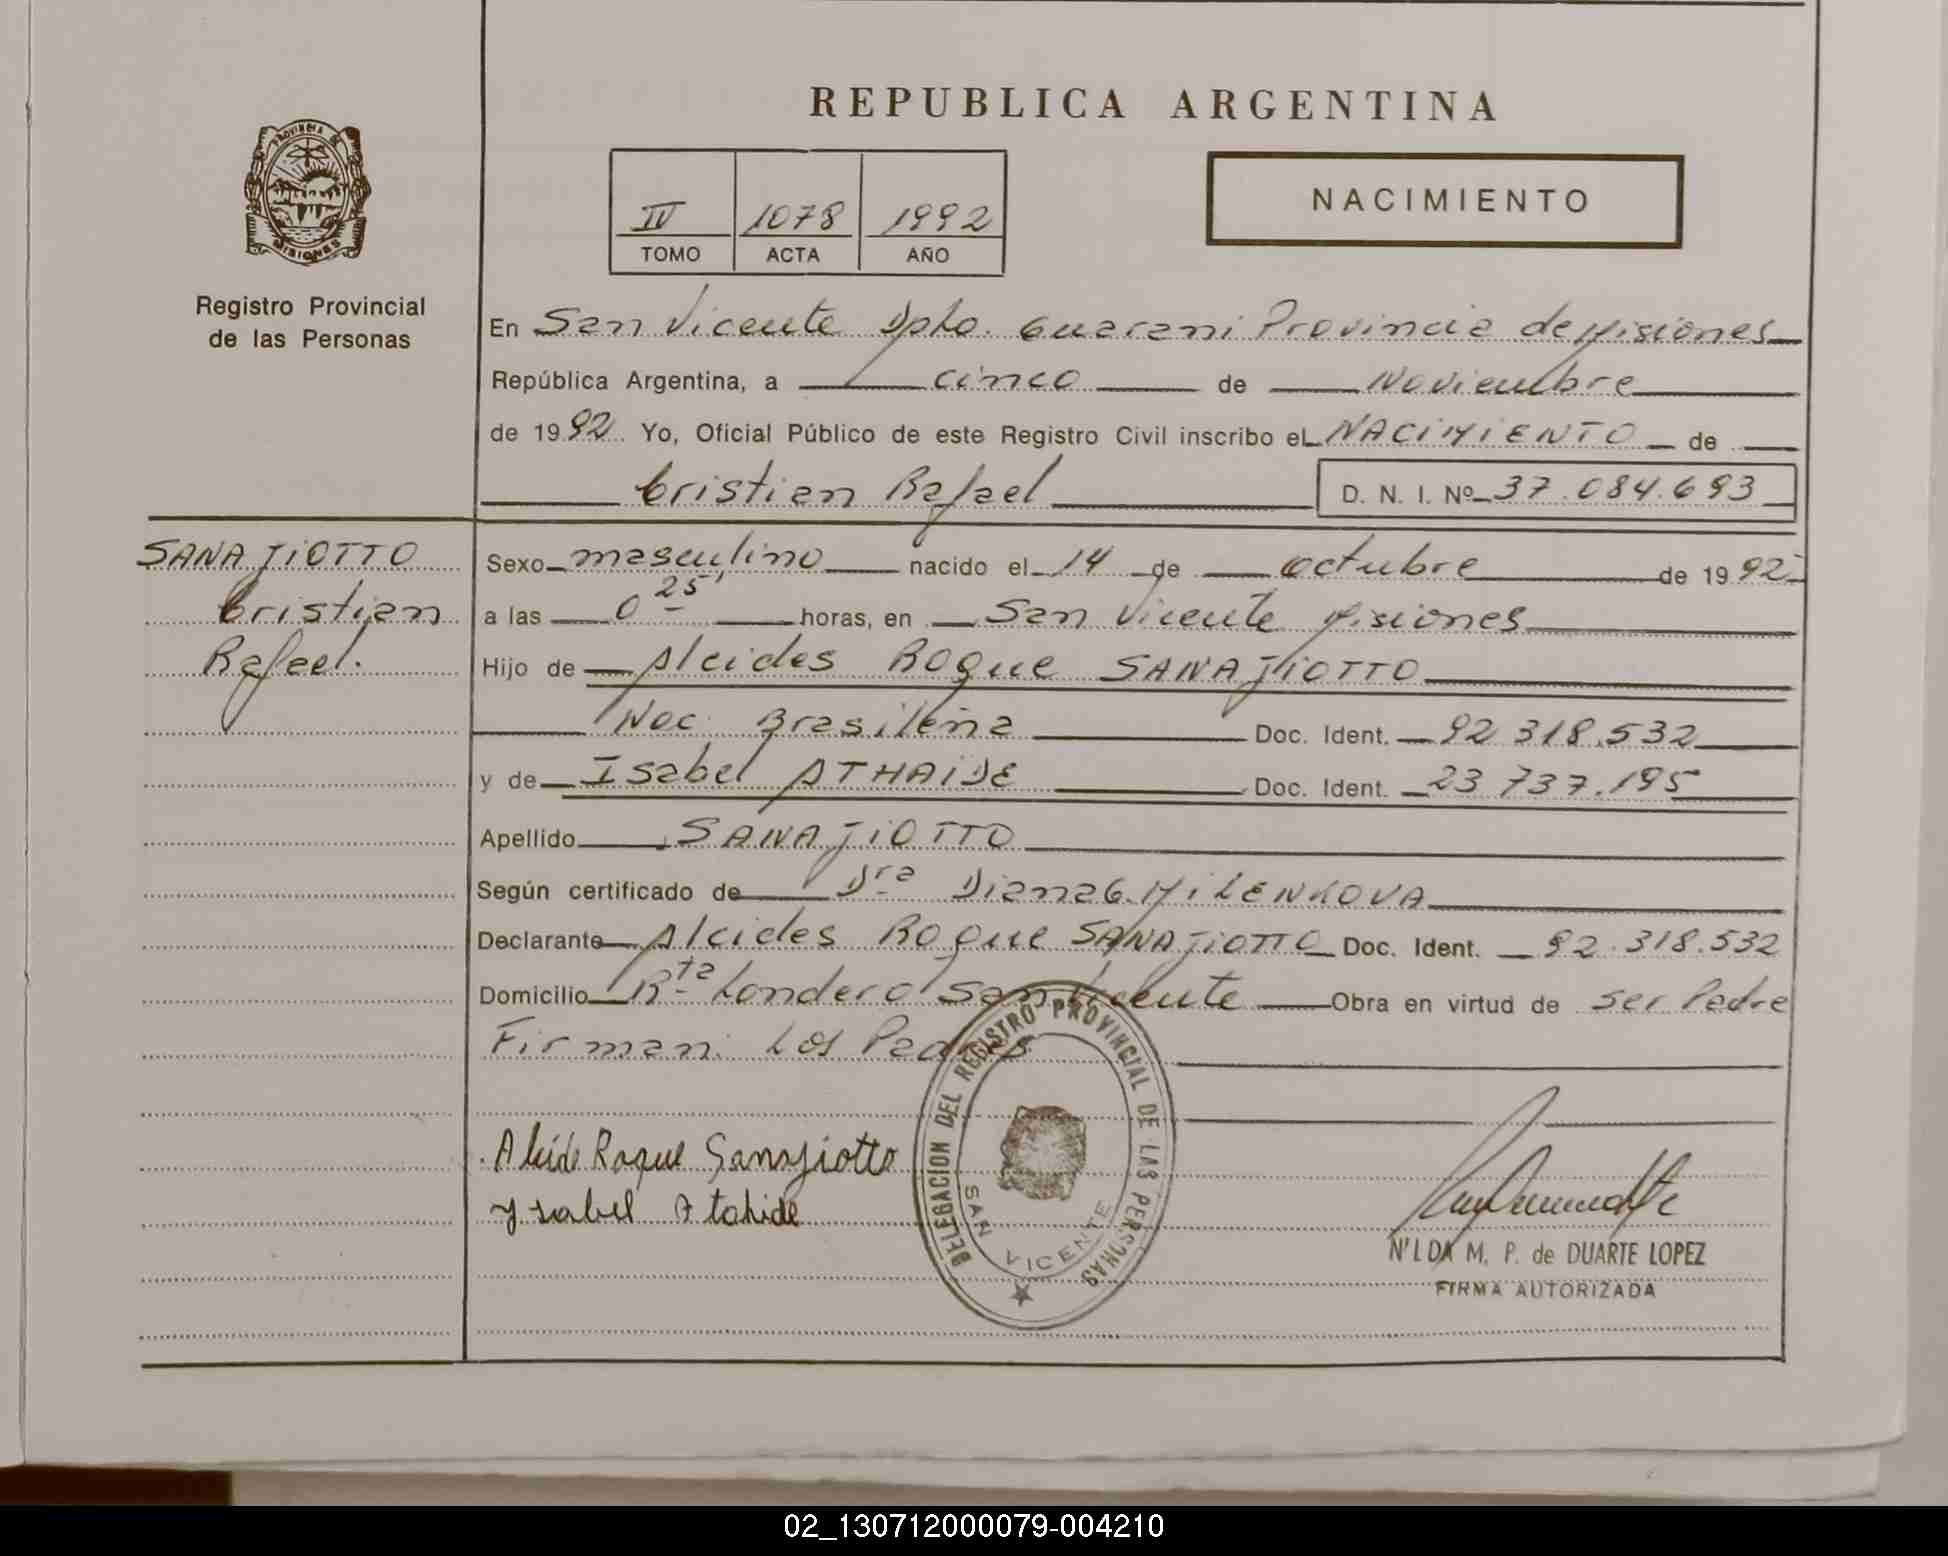 REPUBLICA ARGENTINA
PROVINCIA DE
MISIONES
Registro Provincial
de las Personas
IV 1078 1992
TOMO ACTA AÑO
NACIMIENTO
En San Vicente Dpto. Guarani Provincia de Misiones
República Argentina, a cinco de Noviembre
de 1992 Yo, Oficial Público de este Registro Civil inscribo el NACIMIENTO de
Cristian Rafael D. N. I. Nº 37.084.693
SANAJIOTTO
Cristian
Rafael.
Sexo masculino nacido el 14 de octubre de 1992
a las 0 25' horas, en San Vicente Misiones
Hijo de Alcides Roque SANAJIOTTO
Nac. Brasileña Doc. Ident. 92 318.532
y de Isabel ATHAIDE Doc. Ident. 23 737.195
Apellido SANAJIOTTO
Según certificado de Dra Diana G. MILENKOVA
Declarante Alcides Roque SANAJIOTTO Doc. Ident. 92.318.532
Domicilio Rta Londero San Vicente Obra en virtud de ser Padre
Firman: Los Padres
Alcide Roque Sanajiotto
Ysabel Atahide
DELEGACION DEL REGISTRO PROVINCIAL DE LAS PERSONAS
SAN VICENTE
N'LDA M. P. de DUARTE LOPEZ
FIRMA AUTORIZADA
02_130712000079-004210